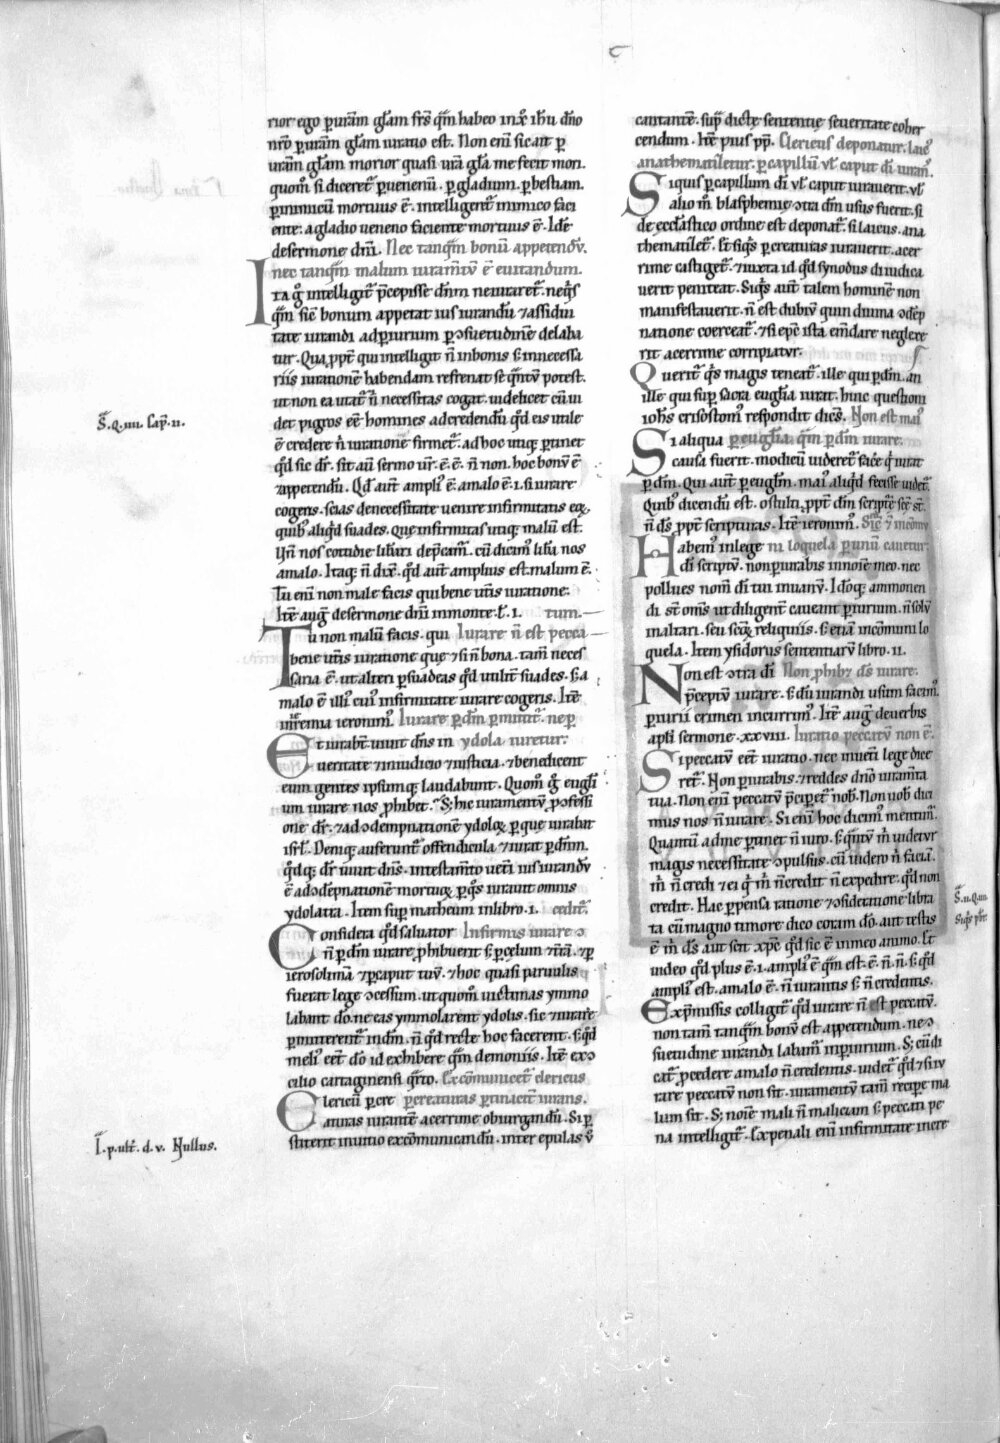 rior ego p uram głam frs qm habeo inx̄ ihu dno
nr̄o p uram głam iuratio est. Non eni sic ait p
uram głam morior quasi ura głа me fecit mori.
quom̄ si diceret p uenenū. p gladium. p bestiam.
p inimicū mortuus ē. intelligeret̄ inimico faci
ente. a gladio ueneno faciente mortuus ē. Idē
de sermone dn̄i. Nec tanqm̄ bonū appetendū.
nec tanqm malum iuram̄tū ē euitandum.
Ita g intelligit̄ p̄cepisse dn̄m ne iuraret̄. neqs
qm̄ sic bonum appetat ius iurandū ⁊ assidui
tate iurandi ad p iurium p ↄsuetudinē delaba
tur. Qua ppt̄ qui intelligit n̄ in bonis s; in necessa
riis iurationē habendam refrenat se q̄ntū potest.
ut non ea utat̄ n̄ necessitas cogat. uidelicet cū ui
det pigros eē homines ad credendū qd eis utile
ē credere n̄ iurationē firmet̄. ad hoc utiq; p tinet
qd sic dr̄. sit aut̄ sermo ur̄. ē. ē. n̄ non. hoc bonū ē
⁊ appetendū. Qd aut̄ ampli' ē. a malo ē. i. si iurare
cogeris. scias de necessitate uenire infirmitatis eoꝝ
quib' aliqd suades. Que infirmitas utiq; malū est.
Vn̄ nos cotidie libari dep̄cam̄. cū dicim' libā nos
a malo. Itaq; n̄ dix̄. qd aut̄ amplius est. malum ē.
Tu eni non male facis qui bene utis iuratione.
Itē auḡ de sermone dn̄i in monte. ł. i. tum.
Tu non malū facis. qui Iurare n̄ est pecca
bene utis iuratione que ⁊ si n̄ bona. tam̄ neces
saria ē. ut alteri p suadeas qd utilit̄ suades. s; a
malo ē illi' cui' infirmitate iurare cogeris. Itē
in ieremia ieronim'. Iurare p dm̄ p mittit̄. ne p
Et iurabt̄ uiuit dn̄s in ydola iuretur.
ueritate ⁊ in iudicio ⁊ iusticia. ⁊ benedicent
eum gentes ipsumq; laudabunt. Quom̄ g eugl̄i
um iurare nos p̄hibet. S; hic iuramentū p ↄfessi
one dr̄. ⁊ ad ↄdempnationē ydoloꝝ p que iurabat
isrł. Deniq; auferunt̄ offendicula ⁊ iurat p dn̄m.
qdq; dr̄ uiuit dn̄s. in testamto ueti ius iurandū
ē ad ↄdep̄nationē mortuoꝝ p qs iurauit omnis
ydolatra. Item sup matheum in libro. i. cedit̄.
Considera qd saluator Infirmis iurare ↄ
n̄ p dm̄ iurare phibuerit s; p celum ⁊ t̄rā. ⁊ p
ierosolimā ⁊ p caput tuū. ⁊ hoc quasi paruulis
fuerat lege ↄcessum. ut quom̄ uictimas ymmo
labant dō. ne eas ymmolarent ydolis. sic ⁊ iurare
p mitterent̄ in dm̄. n̄ qd recte hoc facerent. s; qd
meli' eēt dō id exhibere qm̄ demoniis. Itē ex ↄ
cilio cartaginensi q̄rto. Excōmunicet̄ clericus
Clericū p cre p creaturas p tinacit̄ iurans.
aturas iurantē acerrime obiurgandū. Si p
stiterit in uitio excōmunicandū. inter epulas ū
S. Q. iiii. cap. ii.
I. p. ult. d. v. Nullus.
cantantē. sup dictę sententię seueritate coher
cendum. Itē pius pp. Clericus deponatur. laic'
anathematizetur. p capillū ut caput di iurans.
Si quis p capillum di ut caput iurauerit. ut
alio m̄ blasphemię ↄtra dm̄ usus fuerit. si
de ecclastico ordine est deponat̄. si laicus. ana
thematizet̄. Et siqs p creaturas iurauerit. acer
rime castiget̄. ⁊ iuxta id qd synodus diiudica
uerit peniteat. Siqs aut̄ talem hominē non
manifestauerit. n̄ est dubiū quin diuina ↄdēp
natione coerceat̄. ⁊ si ep̄c ista em̄dare neglexe
rit acerrime corripiatur.
Querit̄ qs magis teneat̄. ille qui p dm̄. an
ille qui sup sacra euglia iurat. hinc questioni
iohs crisostom' respondit dicēs. Non est mai'
Si aliqua p euglia. qm̄ p dm̄ iurare.
causa fuerit. modicū uideret̄ facē q iurat
p dm̄. Qui aut̄ p euglm̄. mai' aliqd fecisse uidet̄.
Quib' dicendū est. o stulti. ppt̄ dm̄ scriptę scē st̄.
n̄ ds ppt̄ scripturas. Itē ieronim'.
Habem' in lege ni loquela p iuriū cauetur.
di scriptū. non p iurabis in noie meo. nec
pollues nom̄ di tui in uanū. Idoq; ammonen
di st̄ om̄s ut diligent̄ caueant p iurium. n̄ solū
in altari. seu scōꝝ reliquiis. s; etiā in cōmuni lo
quela. Item ysidorus sententiarū libro. ii.
Non est ↄtra di Non phib; ds iurare.
p̄ceptū iurare. s; dū iurandi usum facim'.
p iurii crimen incurrim'. Itē auḡ de uerbis
apli sermone. xxviii. Iuratio peccatū non ē.
Si peccatū eēt iuratio. nec in ueti lege dice
ret̄. Non p iurabis. ⁊ reddes dn̄o iuram̄ta
tua. Non eni peccatū p̄ciperet̄ nob'. Non uob' dici
mus nos n̄ iurare. Si eni hoc dicim' mentim̄.
Quantū ad me p tinet n̄ iuro. s; q̄ntū m̄ uidetur
magis necessitate ↄpulsus. cū uidero n̄ faciā.
m̄ n̄ credi ⁊ ei q m̄ n̄ credit n̄ expedire. qd non
credit. Hac p pensa ratione ⁊ ↄsideratione libra
ta cū magno timore dico coram dō. aut testis
ē m̄ ds aut scit xp̄c qd sic ē in meo animo. Et
uideo qd plus ē. i. ampli' ē qm̄ est. ē. n̄. n̄. s; qd
ampli' est. a malo ē. n̄ iurantis s; n̄ credentis.
Ex p̄missis colligit̄ qd iurare n̄ est peccatū.
non tam̄ tanqm̄ bonū est appetendum. ne ↄ
suetudine iurandi labam̄ in p iurium. S; cū di
cat̄ p cedere a malo n̄ credentis. uidet̄ qd ⁊ si iu
rare peccatū non sit. iuramentū tam̄ recipe ma
lum sit. S; noie mali n̄ maliciam s; peccati pe
na intelligit̄. Ex penali eni infirmitate incre
S. ii. Q. iii.